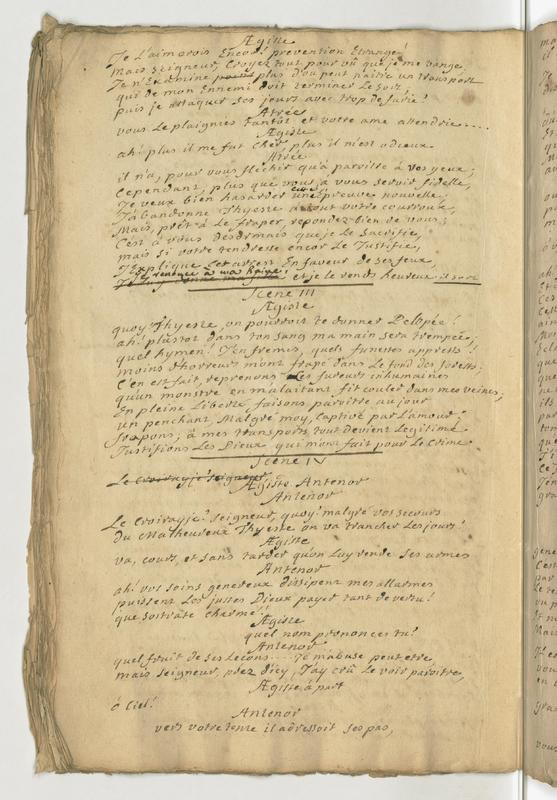 Ægiste
Je L'aimerois Encor! prevention Etrange!
Mais seigneur, Croyez tout pour vû que je me vange.
Je n'Examine plus d'ou peut naitre un transport
qui de mon Ennemi doit terminer Le sort,
puis je attaquer ses jours avec trop de furie!
Atrée
vous Le plaigniez tantôt et votre ame attendrie....
Ægiste
ah! plus il me fut Cher, plus il m'est odieux
Atrée
il n'a, pour vous flechir qu'à paroitre à vos yeux;
Cependant, plus que vous à vous servir fidelle,
Je veux bien hasarder une épreuve nouvelle.
J'abandonne Thyeste à tout votre courroux,
Mais, prêt à Le fraper, repondez-bien de vous;
C'est à vous desormais que je Le sacrifie,
mais si votre tendresse encor Le Justifie,
J'Explique Cet arrest En faveur de ses feux
Je renonce à ma haine, et je le rends heureux. il sort
Scene III
Ægiste
quoy Thyeste, on pourroit te donner Pelopée!
ah! plustot dans ton sang ma main sera trempée,
quel hymen! J'en fremis, quels funestes apprests!
moins d'horreurs m'ont frapé dans Le fond des forests;
C'en est fait, reprenons Les fureurs inhumaines
qu'un monstre en m'alaitant fit couler dans mes veines;
En pleine Liberté faisons paroitre au jour
un penchant, Malgré moy, captivé par L'amour;
frapons; à mes transports tout devient Legitime
Justifions Les Dieux qui m'ont fait pour Le Crime.
Scene IV
Le Croirayje seigneur
Ægiste Antenor
Antenor
Le Croirayje? seigneur, quoy! malgré vos secours
Du Malheureux Thyeste on va trancher Les jours!
Ægiste
va, cours, et sans tarder qu'on Luy rende ses armes
Antenor
ah! vos soins genereux dissipent mes allarmes
puissent Les justes Dieux payer tant de vertu!
que Sostrate charmé!
Ægiste
quel nom prononces tu?
Antenor
quel fruit de ses Leçons.... Je m'abuse peut etre,
mais seigneur, prez d'icy, J'ay crû Le voir paroitre,
Ægiste à part
ô Ciel!
Antenor
vers votre tente il adressoit ses pas,